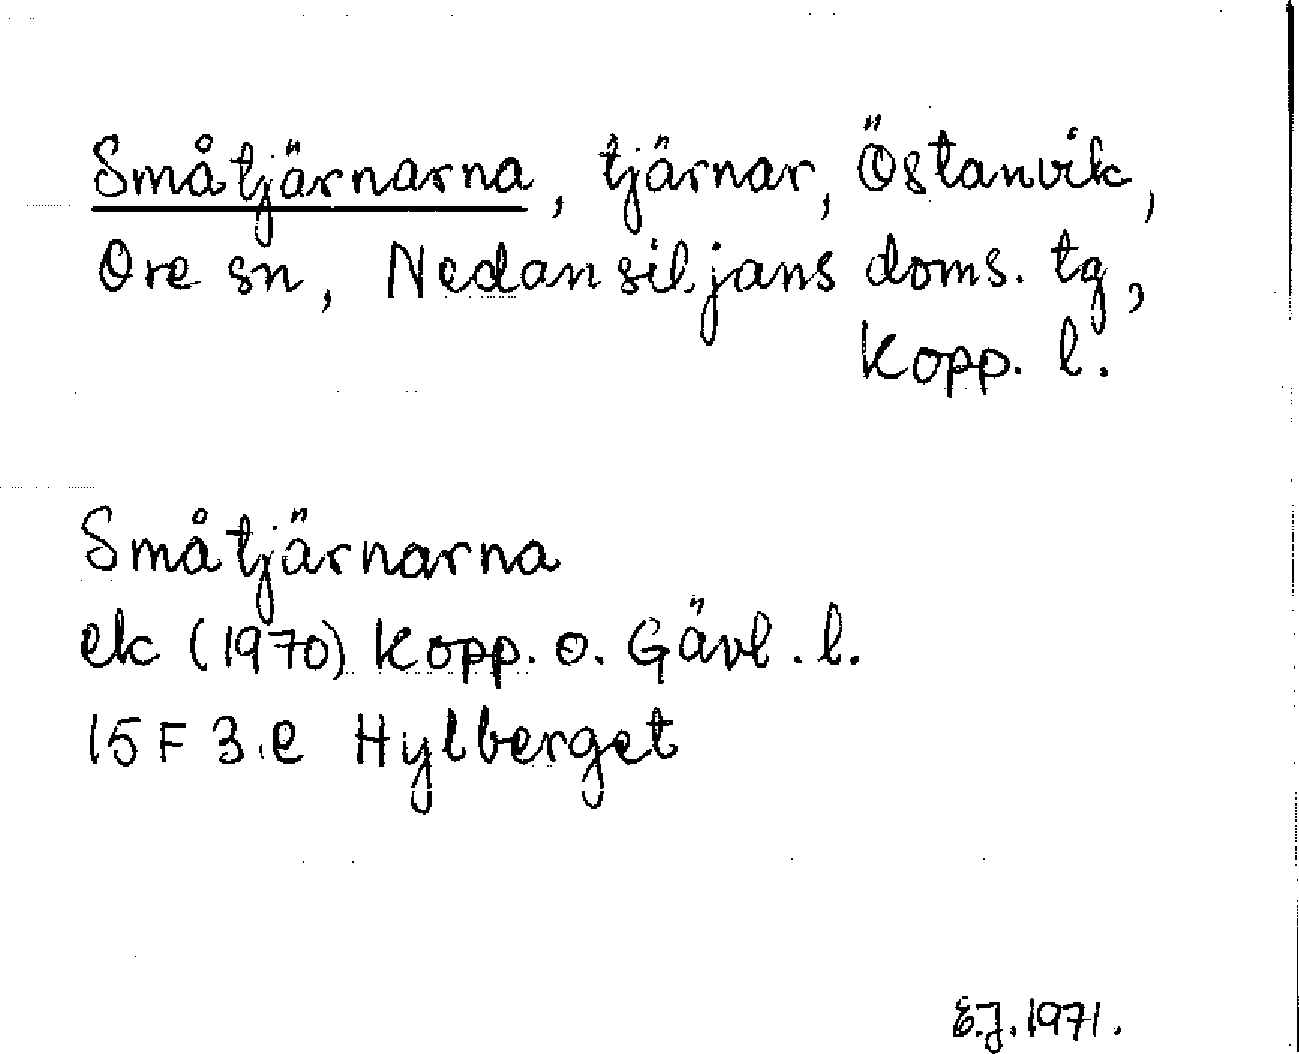 Småtjärnarna, tjärnar, Östanvik,
Ore sn, Nedansiljans doms. tg,
Kopp. l.
Småtjärnarna
ek (1970) Kopp. o. Gävl. l.
15 F 3.e Hylberget
E.J. 1971.